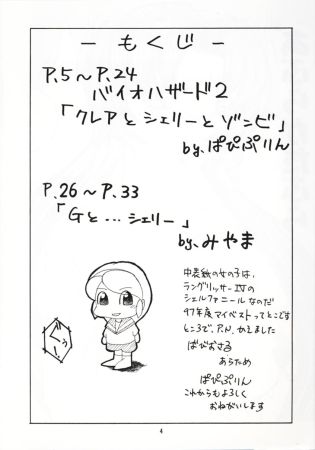 －もくじ－
P.5～P.24
バイオハザード2
「クレアとシェリーとゾンビ」
by.ぱぴぷりん
P.26～P.33
「Gと…シェリー」
by.みやま
中表紙の女の子は、
ラングリッサーⅣの
シェルファニールなのだ
97年度マイベストってとこです
ところで、P.N.かえました
ぱぴおさる
あらため
ぱぴぷりん
これからもよろしく
おねがいします
4